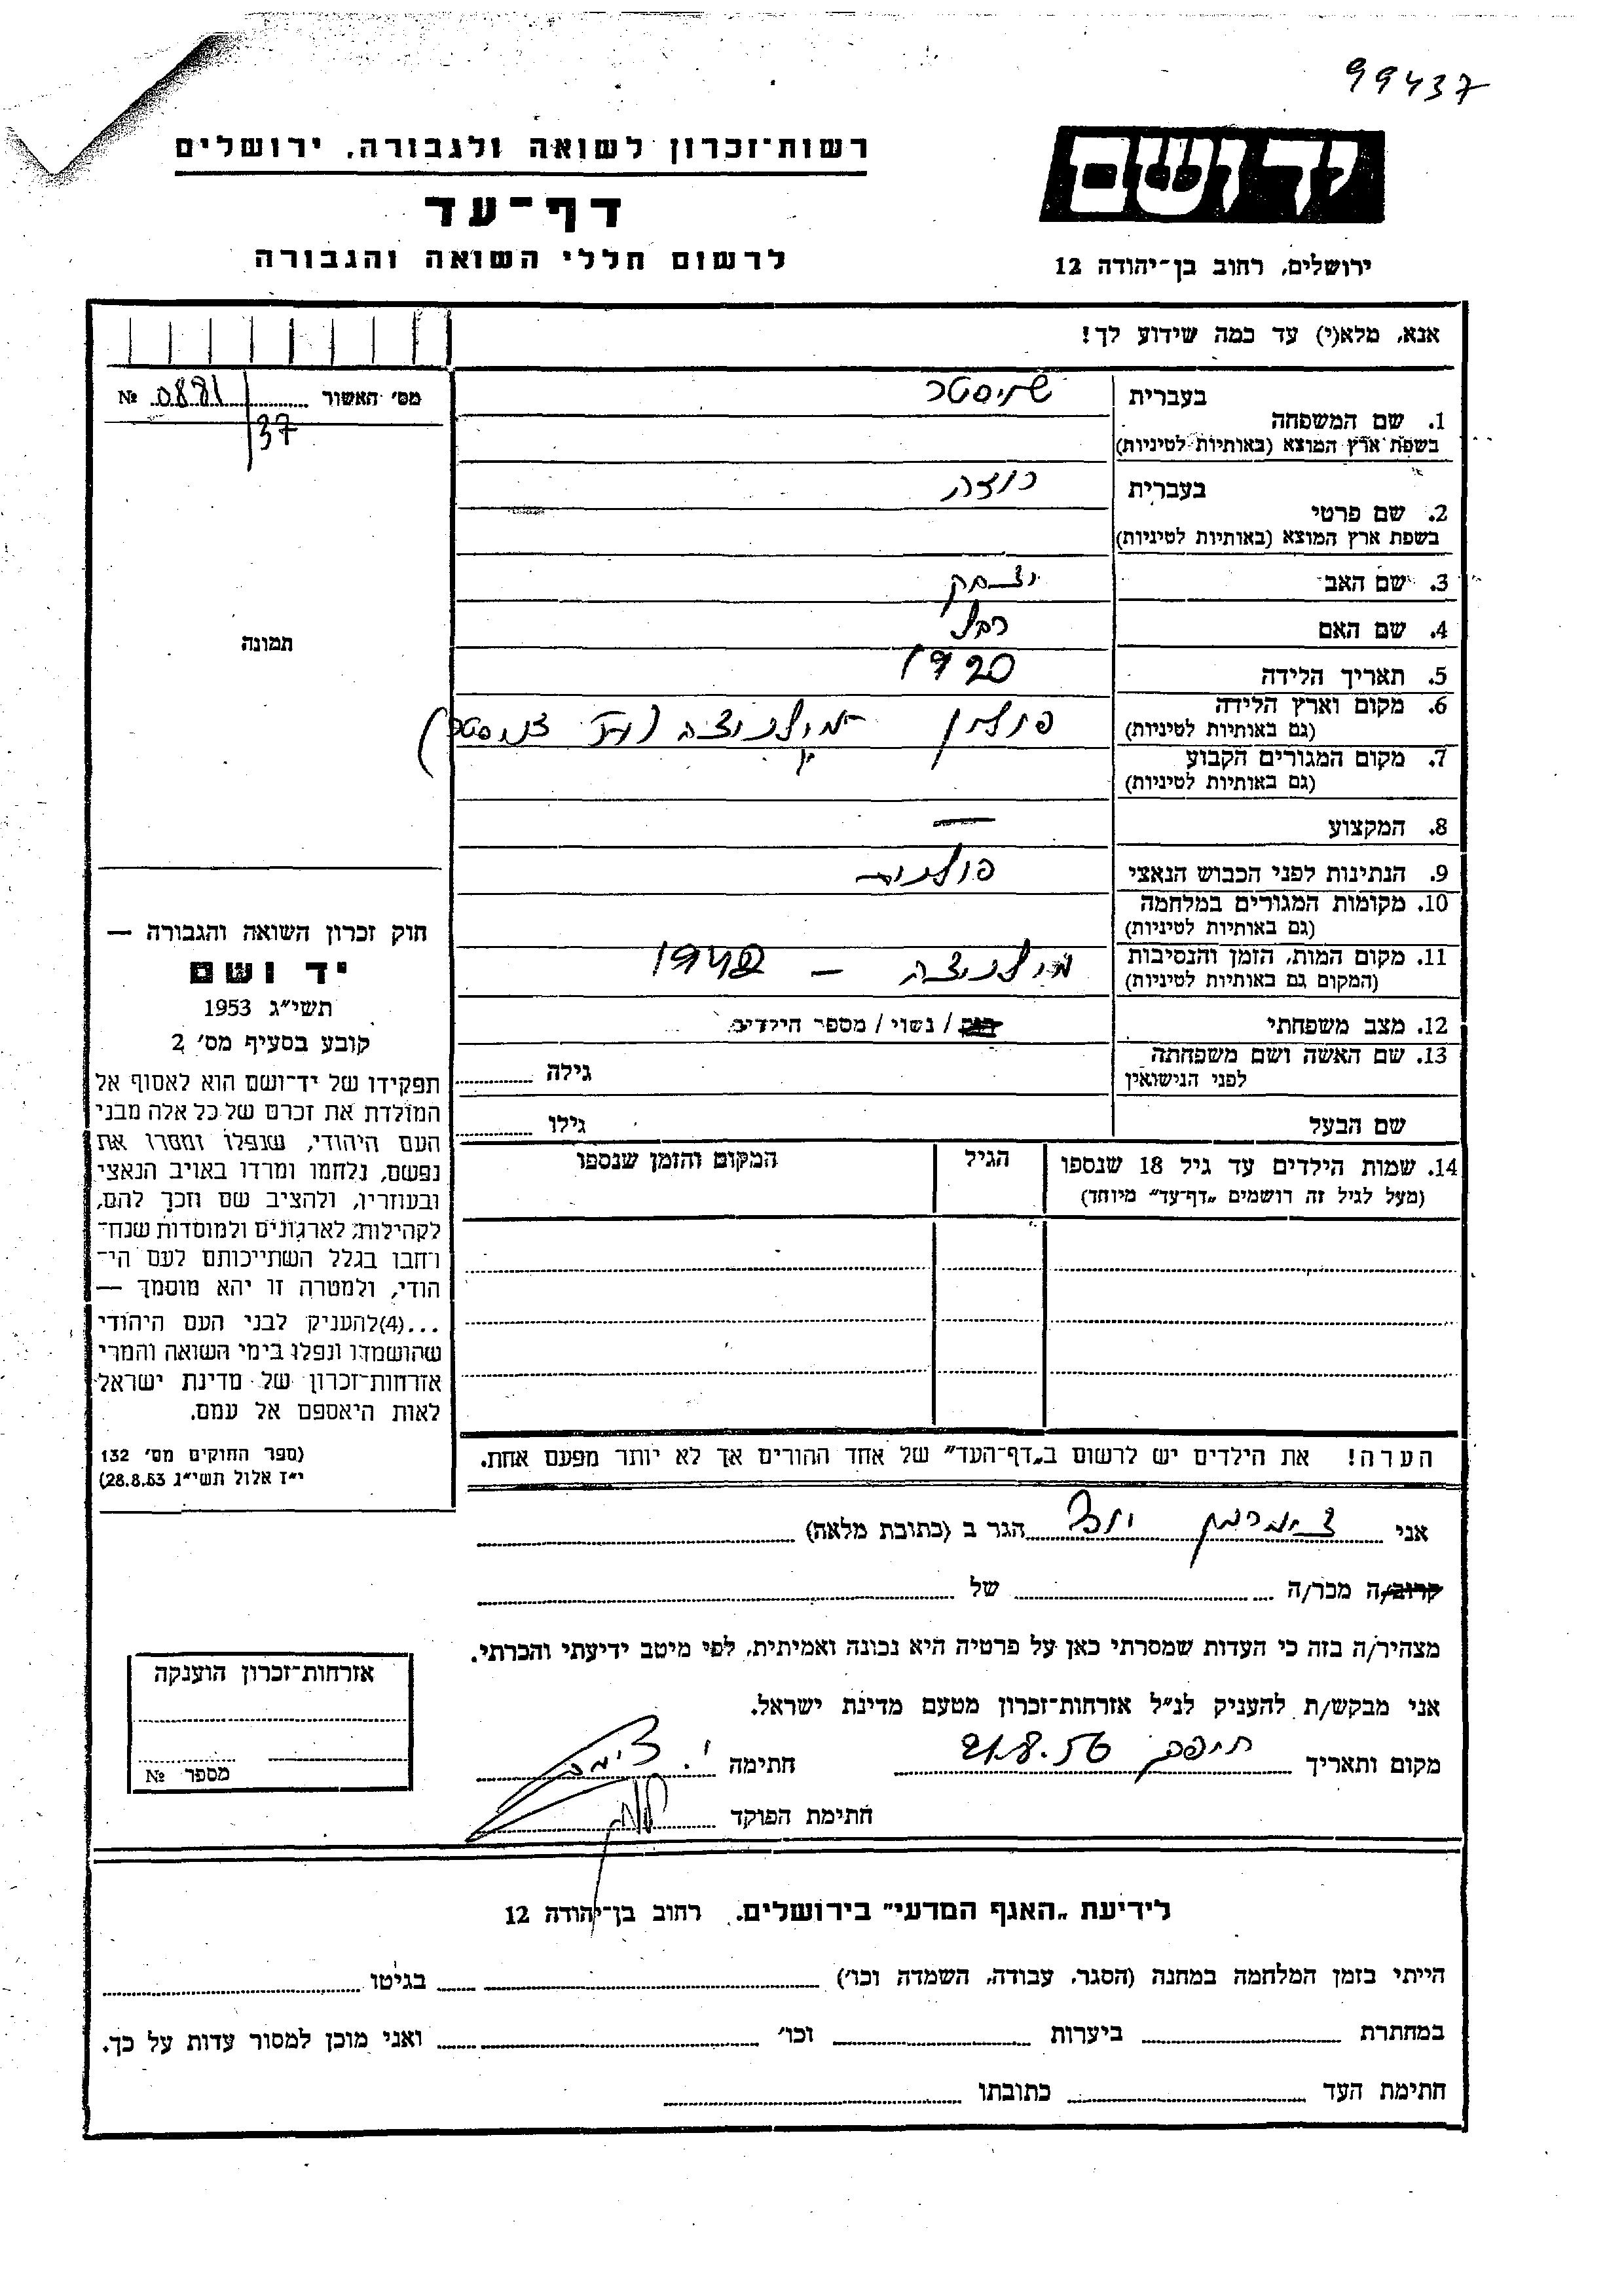 99437
רשות-זכרון לשואה ולגבורה, ירושלים
יד ושם
דף-עד
לרשום חללי השואה והגבורה
ירושלים, רחוב בן-יהודה 12
אנא, מלא(י) עד כמה שידוע לך!
מס' האשור № 0881/37
תמונה
1. שם המשפחה
בעברית
בשפת ארץ המוצא (באותיות לטיניות)
2. שם פרטי
בעברית
בשפת ארץ המוצא (באותיות לטיניות)
3. שם האב יצחק
4. שם האם רחל
5. תאריך הלידה 1920
6. מקום וארץ הלידה פולין
(גם באותיות לטיניות)
7. מקום המגורים הקבוע
(גם באותיות לטיניות)
8. המקצוע —
9. הנתינות לפני הכבוש הנאצי פולנית
10. מקומות המגורים במלחמה
(גם באותיות לטיניות)
11. מקום המות, הזמן והנסיבות 1942
(המקום גם באותיות לטיניות)
12. מצב משפחתי רווק / נשוי / מספר הילדים
13. שם האשה ושם משפחתה גילה
לפני הנישואין
שם הבעל גילו
14. שמות הילדים עד גיל 18 שנספו הגיל המקום והזמן שנספו
(מעל לגיל זה רושמים „דף-עד" מיוחד)
הערה! את הילדים יש לרשום ב„דף-העד" של אחד ההורים אך לא יותר מפעם אחת.
חוק זכרון השואה והגבורה —
יד ושם
תשי"ג 1953
קובע בסעיף מס' 2
תפקידו של יד-ושם הוא לאסוף אל
המולדת את זכרם של כל אלה מבני
העם היהודי, שנפלו ומסרו את
נפשם, נלחמו ומרדו באויב הנאצי
ובעוזריו, ולהציב שם וזכר להם,
לקהילות, לארגונים ולמוסדות שנח-
רחבו בגלל השתייכותם לעם הי-
הודי, ולמטרה זו יהא מוסמך —
...(4)להעניק לבני העם היהודי
שהושמדו ונפלו בימי השואה והמרי
אזרחות-זכרון של מדינת ישראל
לאות היאספם אל עמם.
(ספר החוקים מס' 132
י"ז אלול תשי"ג 28.8.53)
אני הגר ב (כתובת מלאה)
קרוב/ה מכר/ה של
מצהיר/ה בזה כי העדות שמסרתי כאן על פרטיה היא נכונה ואמיתית, לפי מיטב ידיעתי והכרתי.
אני מבקש/ת להעניק לנ"ל אזרחות-זכרון מטעם מדינת ישראל.
מקום ותאריך 21.8.56 חתימה
חתימת הפוקד
אזרחות-זכרון הוענקה
מספר №
לידיעת „האגף המדעי" בירושלים. רחוב בן-יהודה 12
הייתי בזמן המלחמה במחנה (הסגר, עבודה, השמדה וכו') בגיטו
במחתרת ביערות וכו' ואני מוכן למסור עדות על כך.
חתימת העד כתובתו